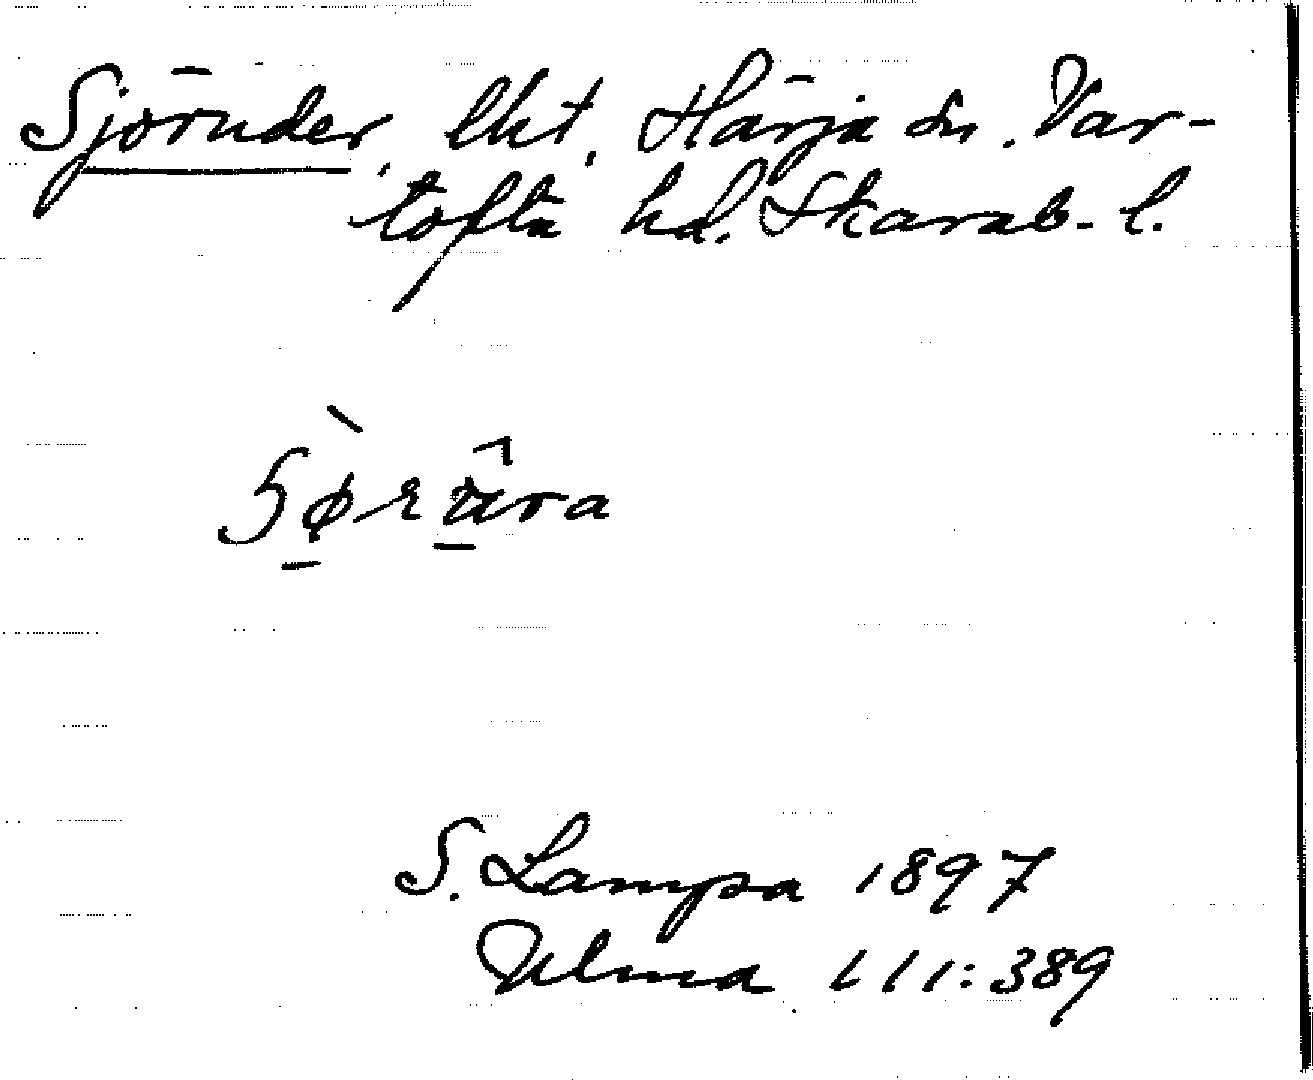 Sjörnder, lht, Härja sn. Var-
tofta hd. Skarab. l.
S. Lampa 1897
Ulma 111:389